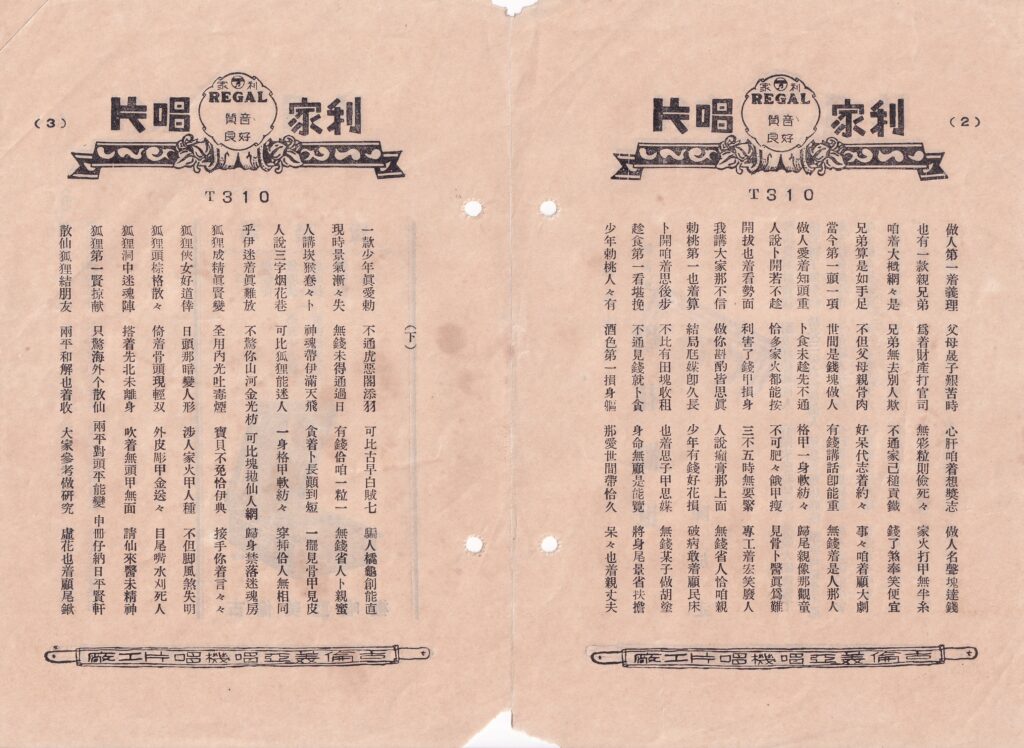 (2)
利家唱片
利家
REGAL
良好
T310
做人第一着義理 父母晟子艱苦時 心肝咱着想獎志 做人名聲塊達錢
也有一款親兄弟 爲着財產打官司 無彩粒則儉死々 家火打甲無半糸
咱着大概網々是 兄弟無去別人欺 不通家己槌貢鐵 錢了煞奉笑便宜
兄弟算是如手足 不但父母親骨肉 好呆代志着約々 事々咱着顧大劇
當今第一頭一項 世間是錢塊做人 有錢講話卽能重 無錢着是人那人
做人愛着知頭重 卜食未趁先不通 格甲一身軟紡々 歸尾親像那觀童
人說卜開若不趁 恰多家火都能按 不可肥々餓甲瘦 見骨卜醫眞爲難
開拔也着看勢面 利害了錢甲損身 三不五時無要緊 專工着宏笑廢人
我講大家那不信 做你斟酌皆思眞 人說瘺膏那上面 無錢省人恰咱親
勅桃第一也着算 結局尪媒卽久長 少年有錢好花損 破病敢着顧民床
卜開咱着思後步 不比有田塊收租 也着思子甲思媒 無錢某子做胡塗
趁食第一看堪挽 不通見錢就卜貪 身命無顧是能覽 將身尾景省扶擔
少年勅桃人々有 酒色第一損身軀 那愛世間帶恰久 呆々也着親丈夫
古倫美亞唱機唱片工廠
(3)
利家唱片
利家
REGAL
良好
T310
(下)
一款少年眞愛勅 不通虎惡閣添羽 可比古早白賊七 騙人橋龜創能直
現時景氣漸々失 無錢未得通過日 有錢恰咱一粒一 無錢省人卜親蜜
人講崁猴惷々卜 神魂帶伊滿天飛 貪着卜長顧到短 一擺見骨甲見皮
人說三字烟花巷 可比狐狸能迷人 一身格甲軟紡々 穿插恰人無相同
乎伊迷着眞難放 不驚你山河金光枋 可比塊拋仙人網 歸身禁落迷魂房
狐狸成精眞賢變 全用內光吐毒煙 寶貝不免恰伊典 接手你着言々々
狐狸俠女好道倖 日頭那暗變人形 涉人家火甲人種 不但脚風煞失明
狐狸頭棕格散々 倚着骨頭現輕双 外皮彫甲金送々 目尾嘴水刈死人
狐狸洞中迷魂陣 搭着先北未離身 吹着無頭甲無面 請仙來醫未精神
狐狸第一賢掠献 只驚海外个散仙 兩平對頭平能變 申冊仔納日平賢軒
散仙狐狸結朋友 兩平和解也着收 大家參考做研究 虛花也着顧尾鍬
古倫美亞唱機唱片工廠